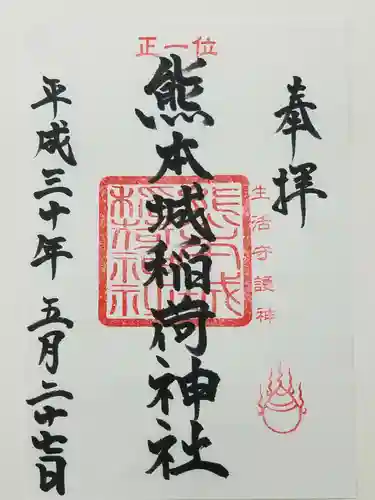 正一位
奉拝
生活守護神
熊本城稲荷神社
平成三十年五月二十七日